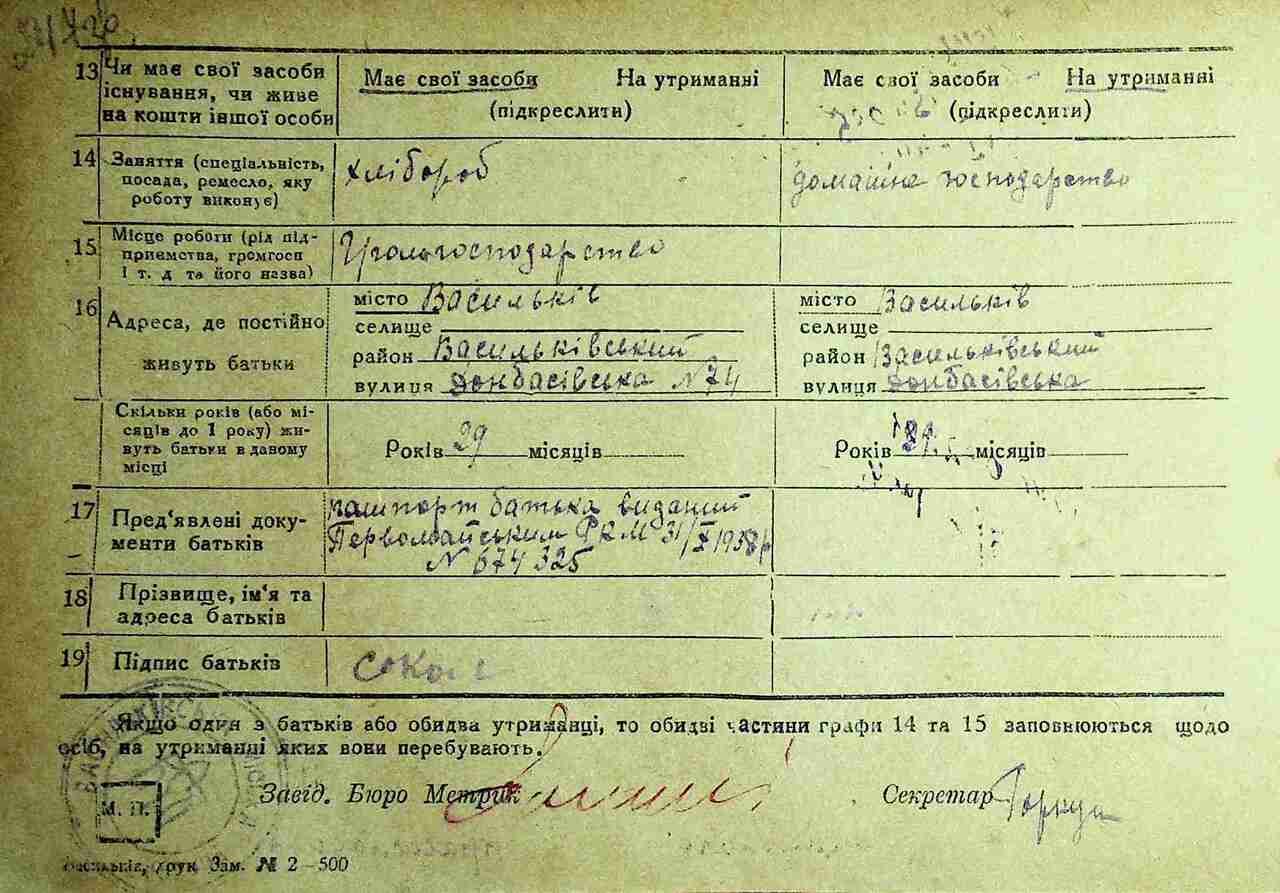 13 Чи має свої засоби існування, чи живе на кошти іншої особи
Має свої засоби На утриманні
(підкреслити)
Має свої засоби На утриманні
(підкреслити)
14 Заняття (спеціальність, посада, ремесло, яку роботу виконує)
хлібороб
домашнє господарство
15 Місце роботи (рід підприємства, громгосп і т. д та його назва)
господарство
16 Адреса, де постійно живуть батьки
місто Васильків
селище
район Васильківський
вулиця Донбасівська N 74
місто Васильків
селище
район Васильківський
вулиця Донбасівська
Скільки років (або місяців до 1 року) живуть батьки в даному місці
Років 29 місяців
Років місяців
17 Пред'явлені документи батьків
пашпорт батька виданий
Первомайським РКМ 31/X 1938р
N 674325
18 Прізвище, ім'я та адреса батьків
19 Підпис батьків
Якщо один з батьків або обидва утриманці, то обидві частини графи 14 та 15 заповнюються щодо
осіб, на утриманні яких вони перебувають.
М. П.
Завід. Бюро Метрик
Секретар
Васильків, друк. Зам. № 2—500